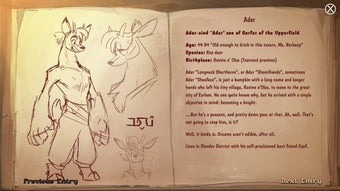 Ader
Ader-zind "Ader" son of Gorfas of the Upperfield
Age: 19
"Old enough to drink in this tavern, Ms. Barkeep"
Species: Roe deer
Birthplace: Ravine o' Ulas (Tescraea province)
Ader "Longneck Shorthorn", or Ader "Shoselhands", sometimes
Ader "Shoeless", is just a bumpkin with a long name and longer
hands who left his tiny village, Ravine o'Ulas, to move to the great
city of Eyrlem. No one quite knows why, but he arrived with a single
objective in mind: becoming a knight.
...But he's a peasant, and pretty damn poor at that. Ah, well. That's
not going to stop him, is it?
Well, it kinda is. Dreams aren't edible, after all.
Lives in Slender District with his self-proclaimed best friend Gyof.
Previous Entry
Next Entry